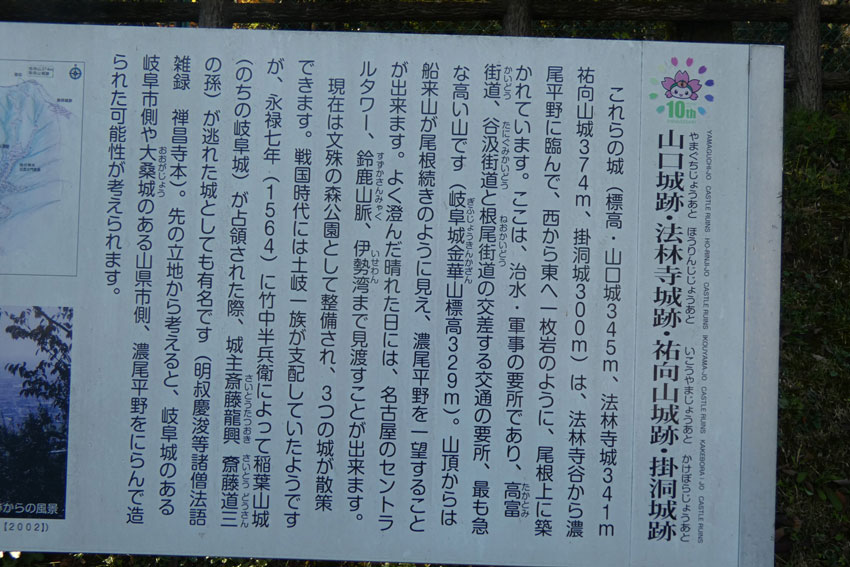 10th
YAMAGUCHI-JO CASTLE RUINS HO-RINJI-JO CASTLE RUINS IKOUYAMA-JO CASTLE RUINS KAKEBORA-JO CASTLE RUINS
やまぐちじょうあと ほうりんじじょうあと いこうやまじょうあと かけぼらじょうあと
山口城跡・法林寺城跡・祐向山城跡・掛洞城跡
これらの城(標高・山口城345m、法林寺城341m
祐向山城374m、掛洞城300m)は、法林寺谷から濃
尾平野に臨んで、西から東へ一枚岩のように、尾根上に築
かれています。ここは、治水・軍事の要所であり、高富
たかとみ
街道、谷汲街道と根尾街道の交差する交通の要所、最も急
かいどう たにぐみかいどう ねおかいどう
な高い山です(岐阜城金華山標高329m)。山頂からは
ぎふじょうきんかざん
船来山が尾根続きのように見え、濃尾平野を一望すること
が出来ます。よく澄んだ晴れた日には、名古屋のセントラ
ルタワー、鈴鹿山脈、伊勢湾まで見渡すことが出来ます。
すずかさんみゃく いせわん
現在は文殊の森公園として整備され、3つの城が散策
できます。戦国時代には土岐一族が支配していたようです
が、永禄七年(1564)に竹中半兵衛によって稲葉山城
(のちの岐阜城)が占領された際、城主斎藤龍興(斎藤道三
さいとうたつおき さいとうどうさん
の孫)が逃れた城としても有名です(明叔慶浚等諸僧法語
雑録 禅昌寺本)。先の立地から考えると、岐阜城のある
岐阜市側や大桑城のある山県市側、濃尾平野をにらんで造
おおがじょう
られた可能性が考えられます。
からの風景
【2002】)